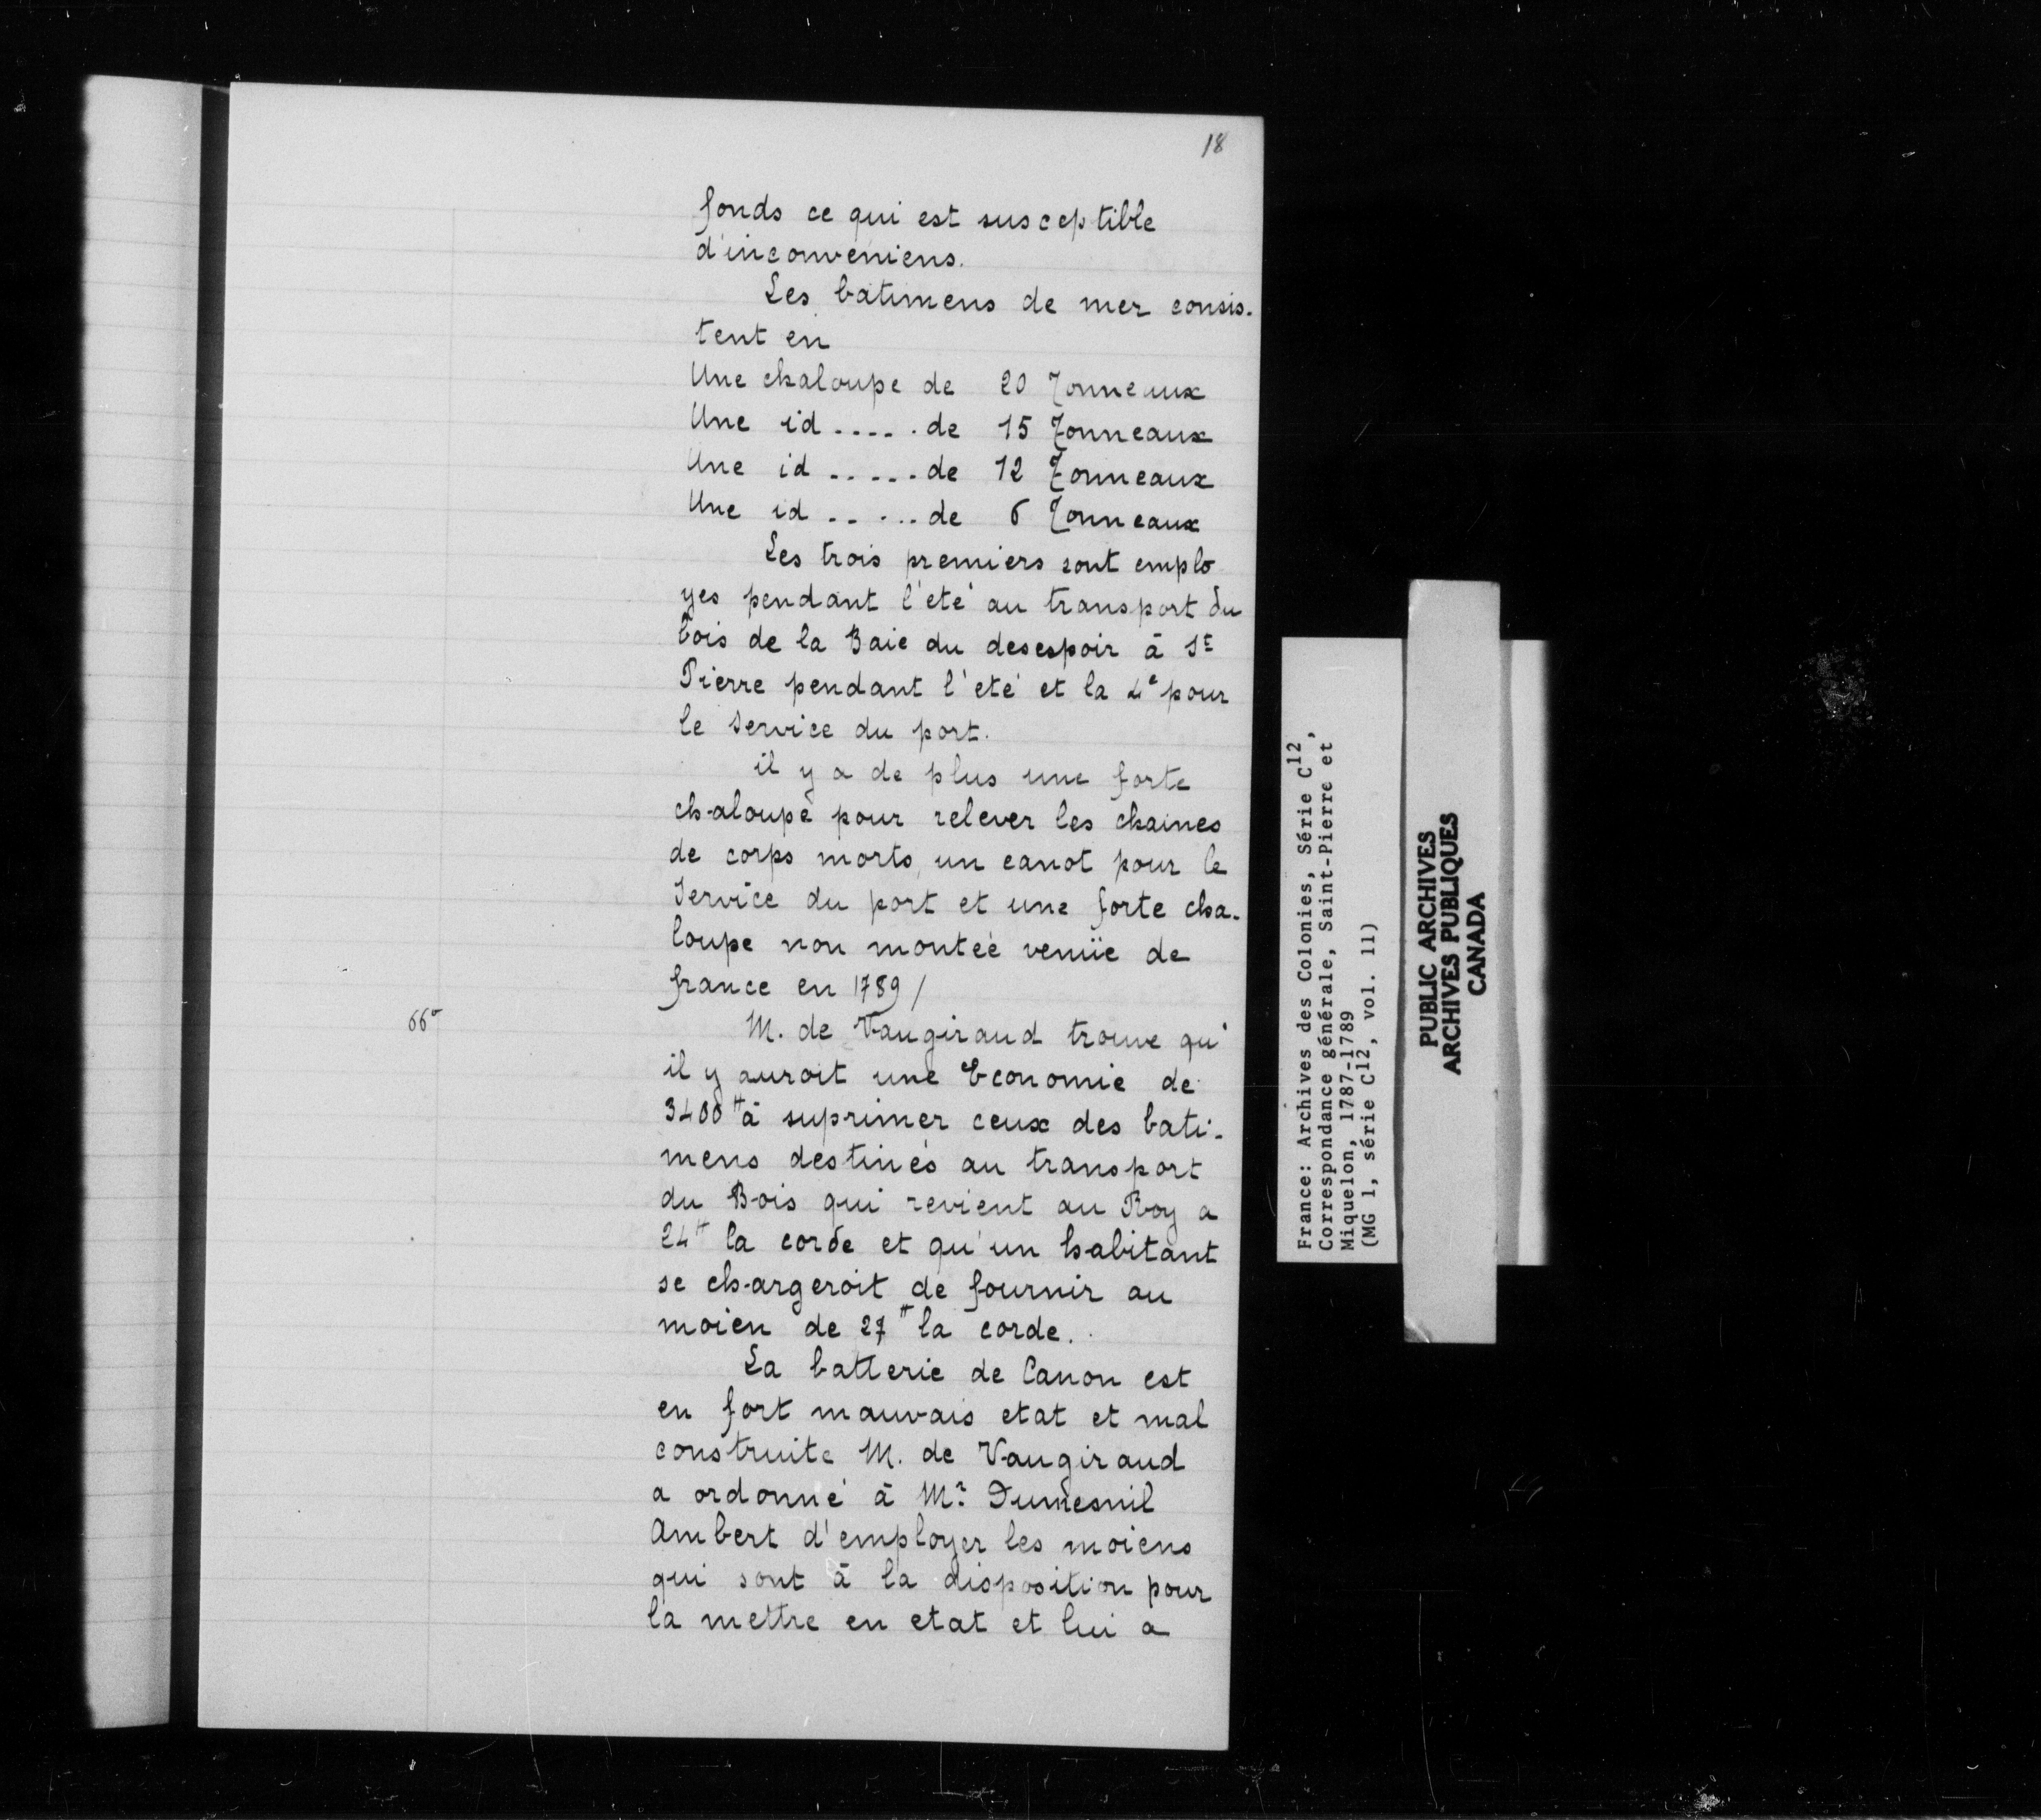 18
fonds ce qui est susceptible
d'inconveniens.
Les batimens de mer consis-
tent en
Une chaloupe de 20 Tonneaux
Une id ..... de 15 Tonneaux
Une id ..... de 12 Tonneaux
Une id ..... de 6 Tonneaux
Les trois premiers sont emplo
yes pendant l'eté au transport du
bois de la Baie du desespoir à St
Pierre pendant l'eté et la 4e pour
le service du port.
il y a de plus une forte
chaloupe pour relever les chaines
de corps morts, un canot pour le
Service du port et une forte cha-
loupe non montée venüe de
france en 1789/
66o
M. de Vaugiraud trouve qu'
il y auroit une Economie de
3400# à suprimer ceux des bati-
mens destinés au transport
du Bois qui revient au Roy a
24# la corde et qu'un habitant
se chargeroit de fournir au
moien de 27# la corde.
La batterie de Canon est
en fort mauvais etat et mal
construite M. de Vaugiraud
a ordonné à Mr Dumesnil
Ambert d'employer les moiens
qui sont à la disposition pour
la mettre en etat et lui a
France: Archives des Colonies, Série C12,
Correspondance générale, Saint-Pierre et
Miquelon, 1787-1789
(MG 1, série C12, vol. 11)
PUBLIC ARCHIVES
ARCHIVES PUBLIQUES
CANADA